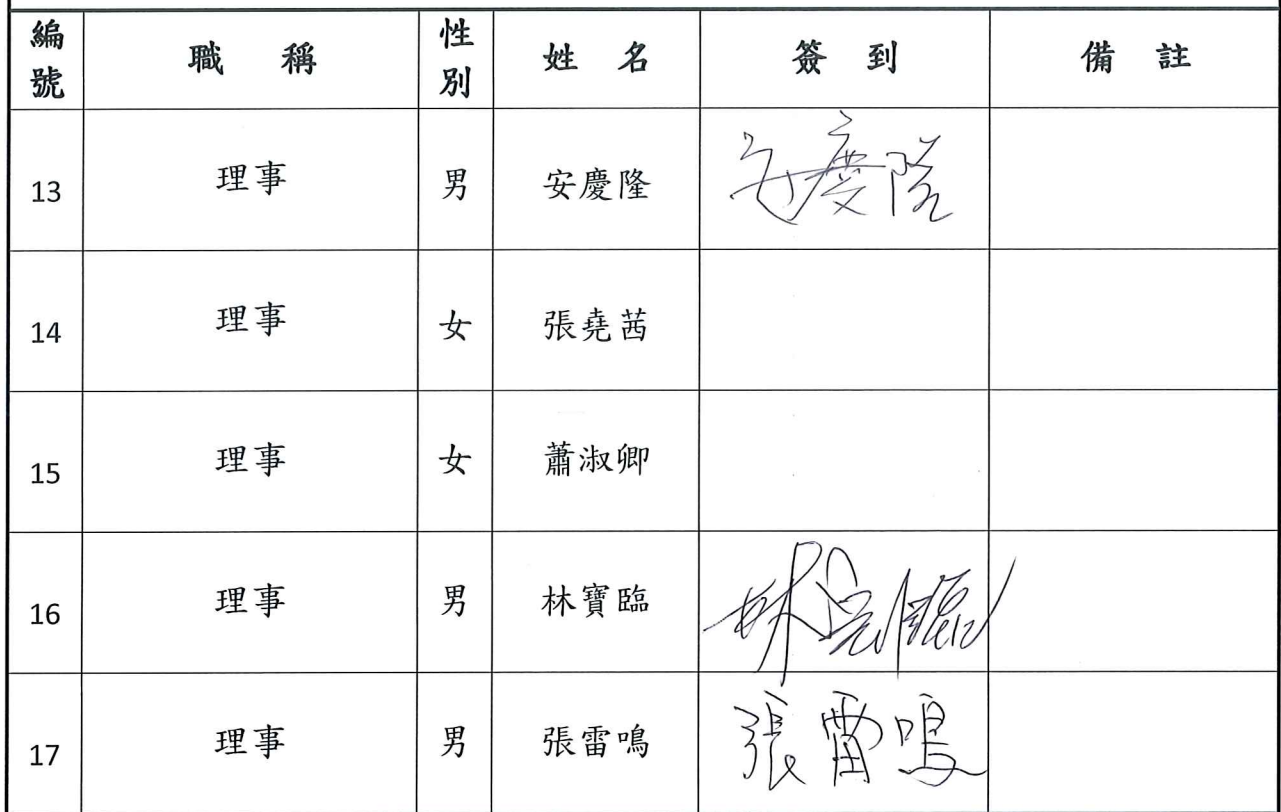 編號 職稱 性別 姓名 簽到 備註
13 理事 男 安慶隆 安慶隆
14 理事 女 張堯茜
15 理事 女 蕭淑卿
16 理事 男 林寶臨 林寶臨
17 理事 男 張雷鳴 張雷鳴